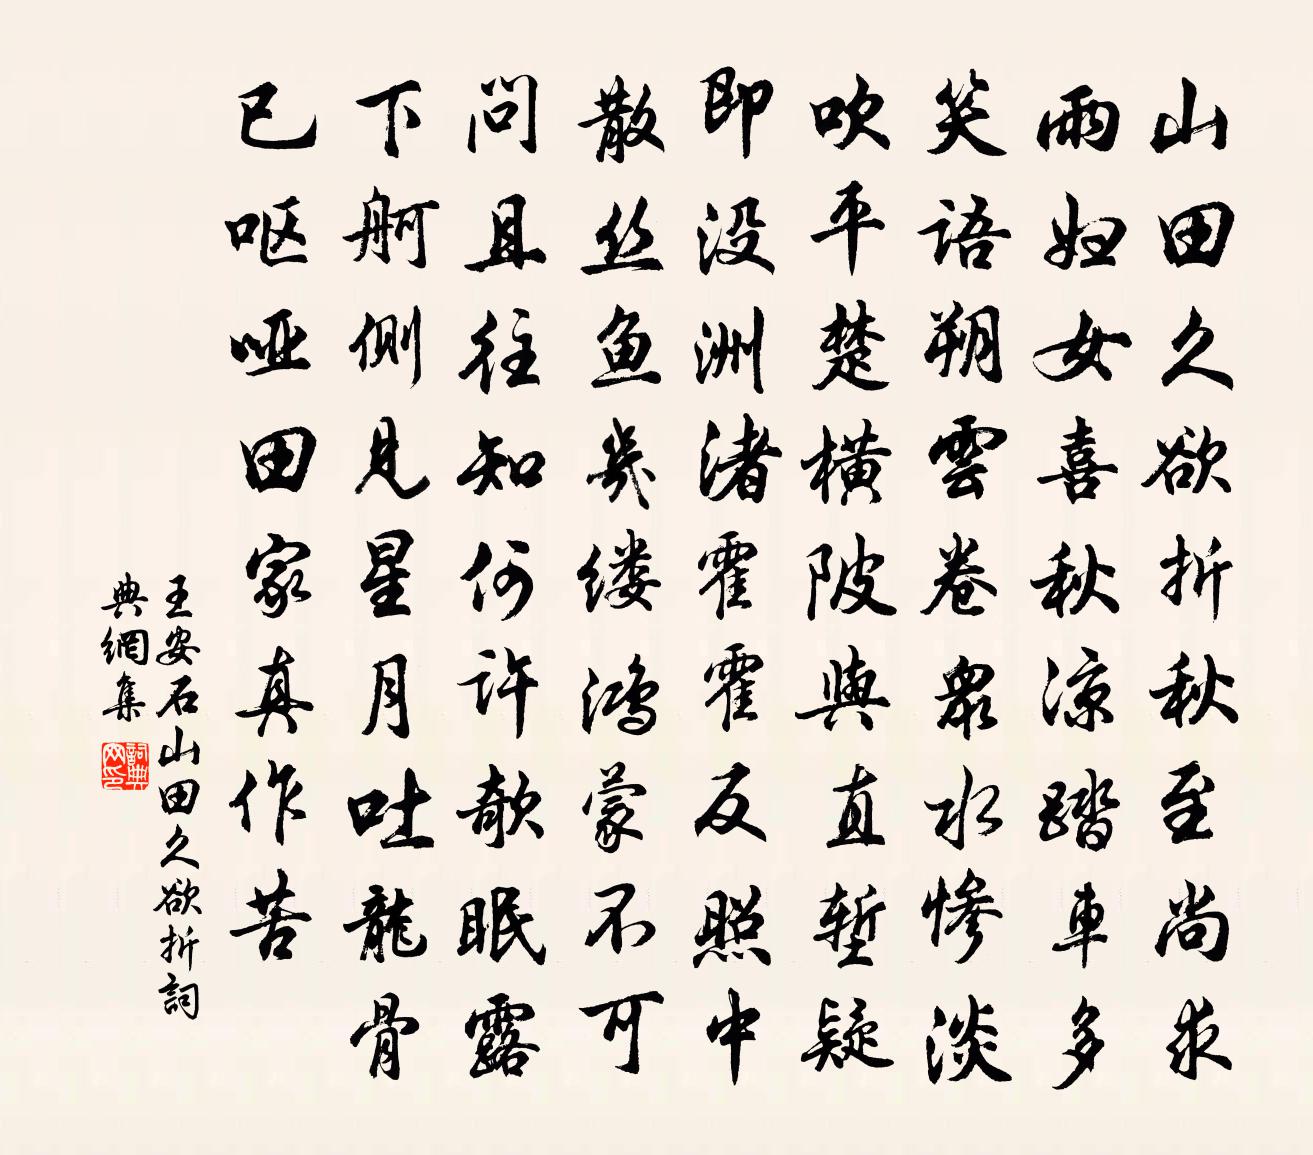 山田久欲折秋至尚求
雨妇女喜秋凉踏車多
笑语朔雲卷衆水惨淡
吹平楚横陂與直堑疑
即没洲渚霍霍反照中
散丝鱼几缕鸿蒙不可
問且往知何许欹眠露
下舸侧見星月吐龍骨
已呕哑田家真作苦
王安石山田久欲折詞
典網集
詞典
网印